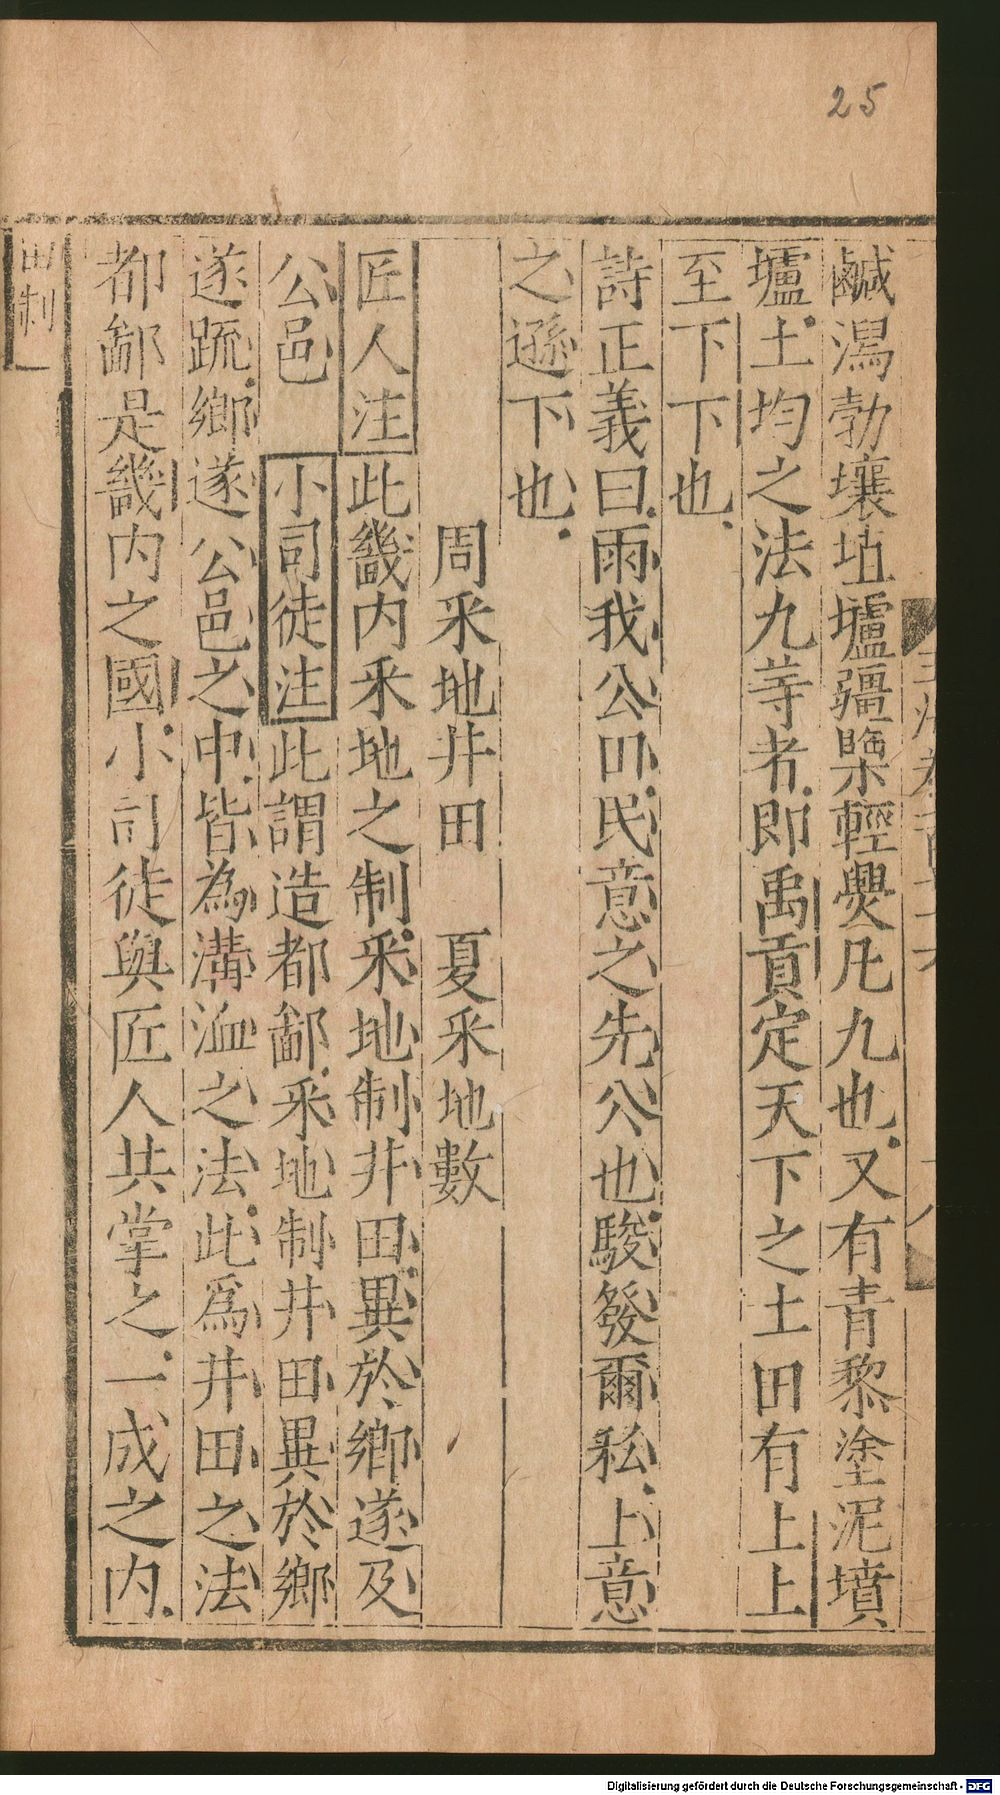 25
鹹潟勃壤埴壚疆㯺輕㷿凡九也又有青黎塗泥墳
壚土均之法九等者即禹貢定天下之土田有上上
至下下也
詩正義曰雨我公田民意之先公也駿發爾私上意
之遜下也
周采地井田 夏采地數
匠人注此畿内采地之制采地制井田異於鄉遂及
公邑 小司徒注此謂造都鄙采地制井田異於鄉
遂䟽鄉遂公邑之中皆為溝洫之法此爲井田之法
都鄙是畿内之國小司徒與匠人共掌之一成之内
田制一
Digitalisierung gefördert durch die Deutsche Forschungsgemeinschaft - DFG